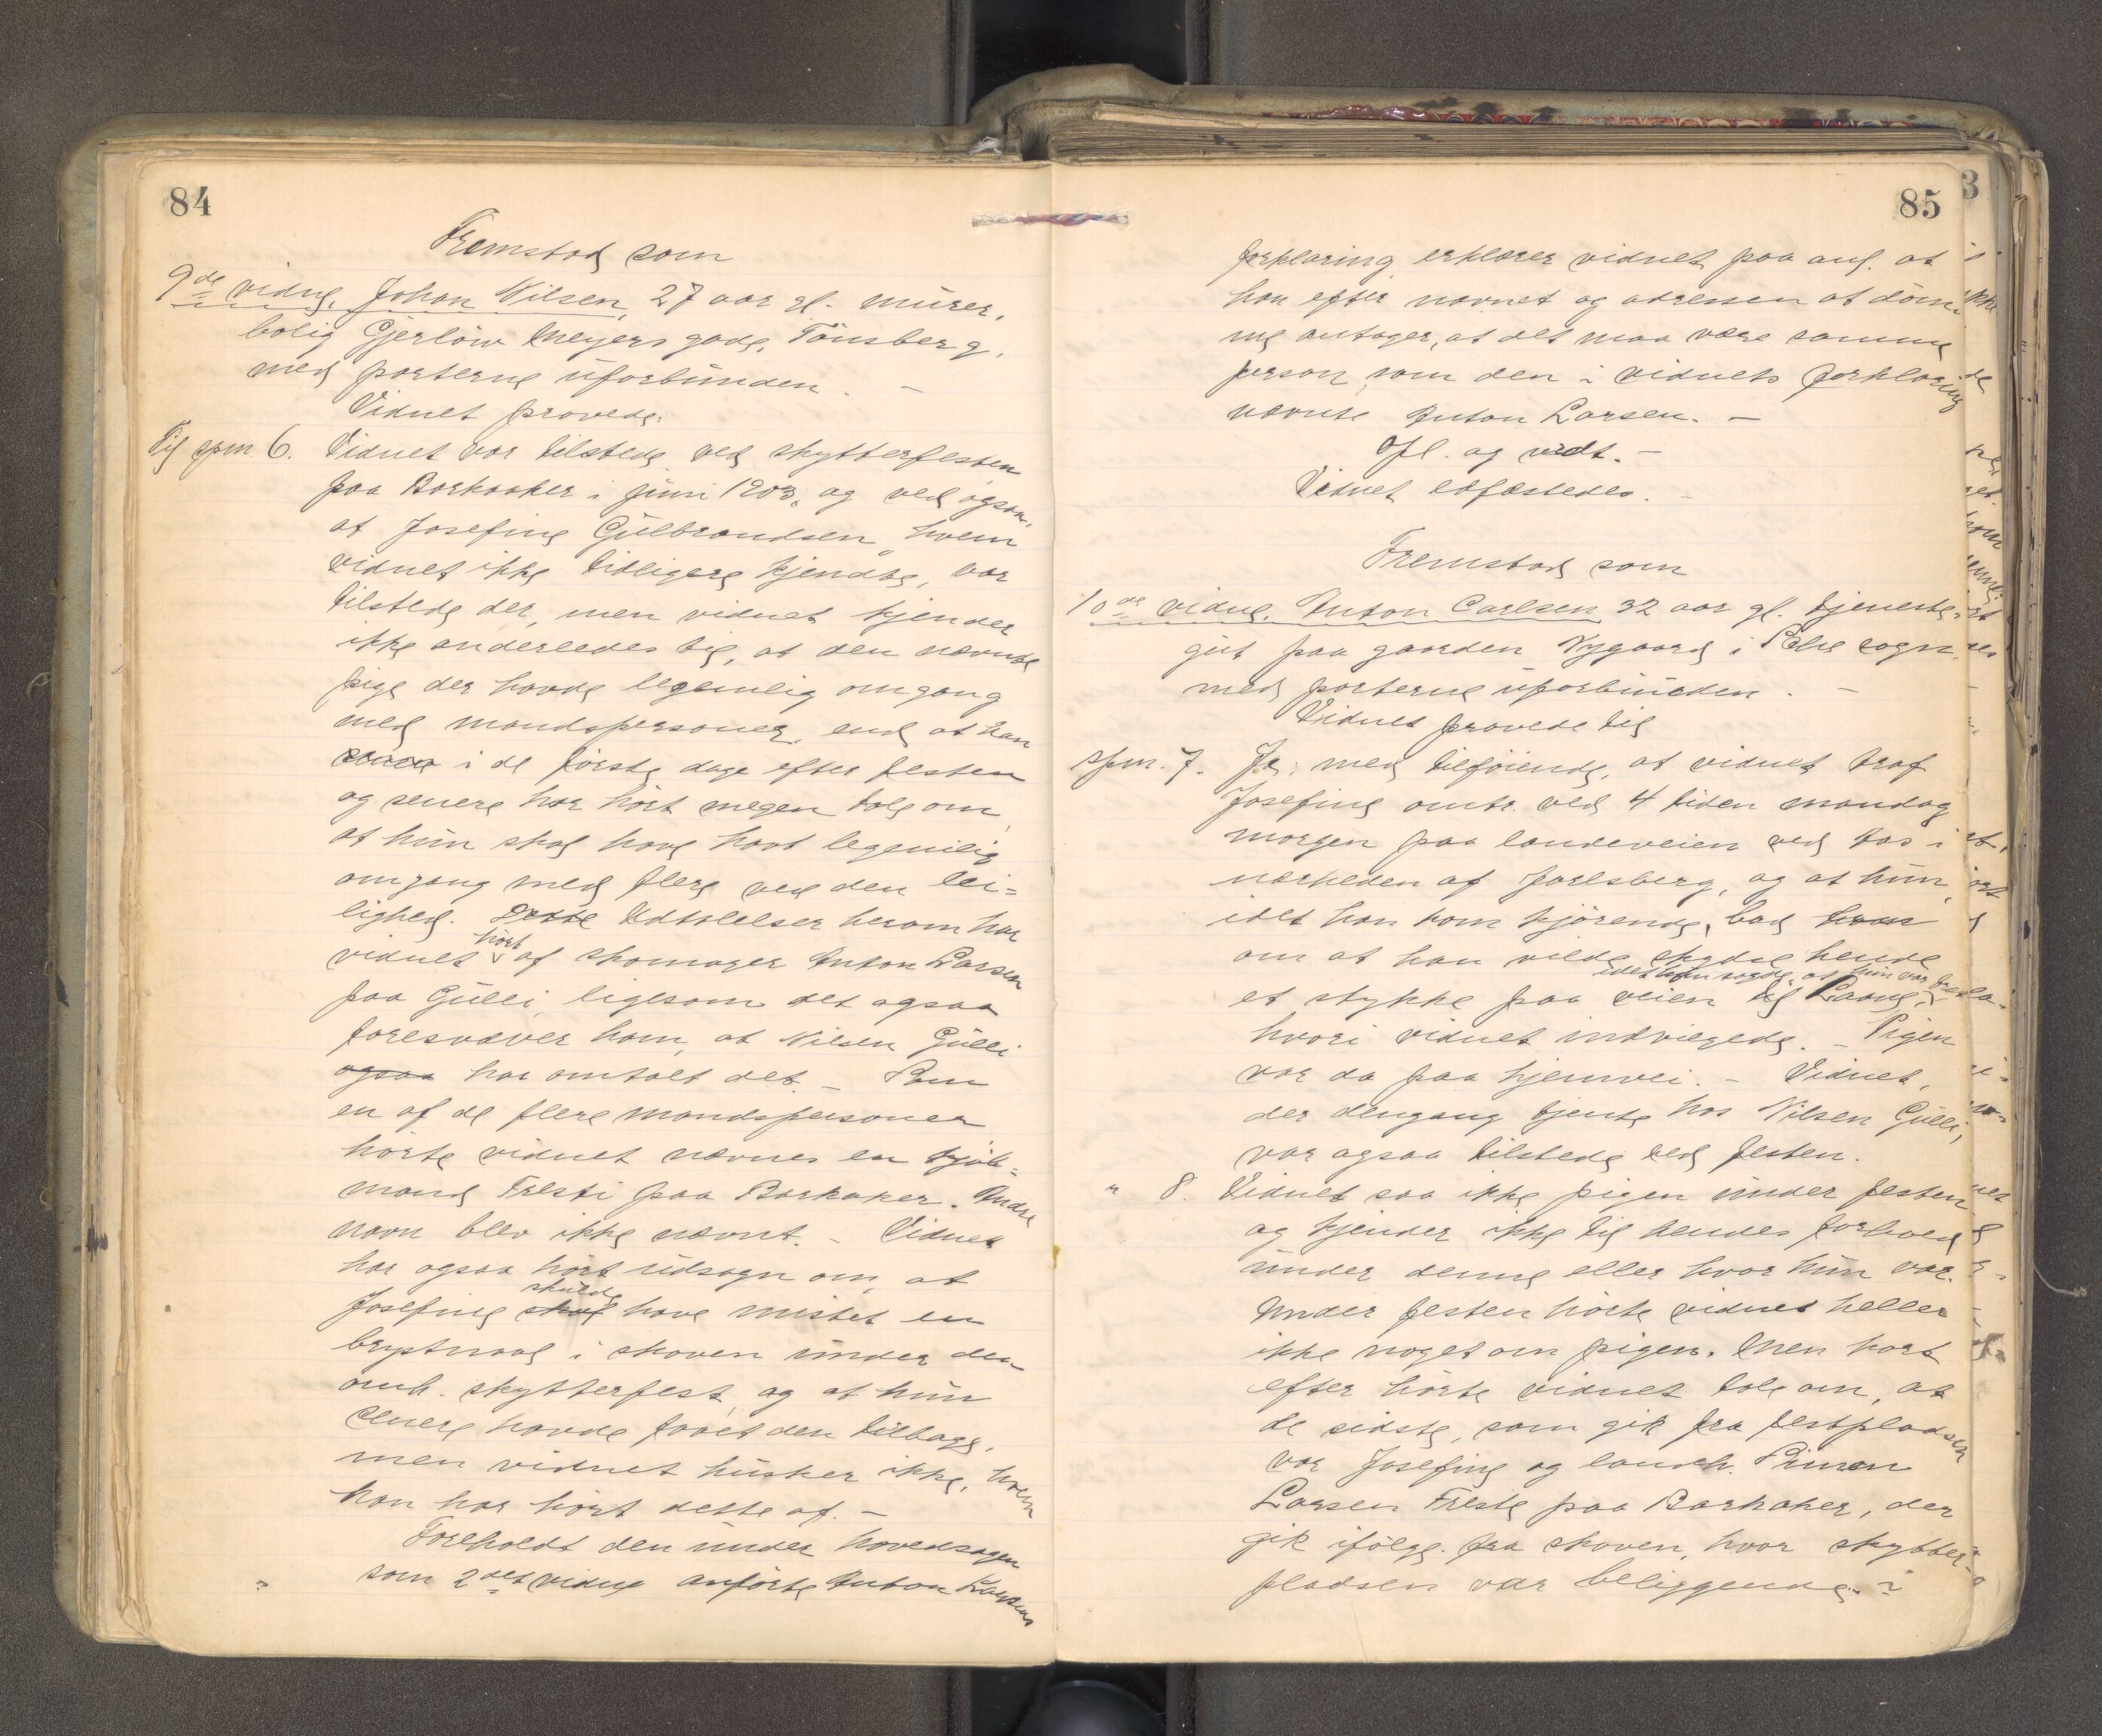 84
Fremstod som
9de vidne, Johan Nilsen, 27 aar gl. murer,
bolig Gjerløw Meyers gade, Tönsberg,
med parterne uforbunden. –
Vidnet provede:
Til spm. 6. Vidnet var tilstede ved skytterfesten
paa Barkaaker i juni 1903, og ved ogsaa,
at Josefine Gulbrandsen, hvem
vidnet ikke tidligere kjendte, var
tilstede der, men vidnet kjender
ikke anderledes til, at den nævnte
pige der havde legemlig omgang
med mandspersoner, end at han
i de første dage efter festen
og senere har hört megen tale om,
at hun skal have havt legemlig
omgang med flere ved den lei-
lighed. Dette Udtalelser herom har
vidnet hört af skomager Anton Larsen
paa Gulli, ligesom det ogsaa
foresvæver ham, at Nilsen Gulli
ogsaa har omtalt det – Som
en af de flere mandspersoner
hörte vidnet nævnes en kjöb-
mand Freste paa Barkaker. Andre
navn blev ikke nævnt. – Vidnet
har ogsaa hört udsagn om, at
Josefine skal skulde have mistet en
brystnaal i skoven under den
omh. skytterfest, og at hun
senere havde faaet den tilbage,
men vidnet husker ikke, hvem
han har hört dette af. –
Foreholdt den under hovedsagen
som 2det vidne anförte Anton Larsens
85
forklaring erklærer vidnet paa anl. at
han efter navnet og adressen at döm-
me antager, at det maa være samme
person som den i vidnets forklaring
nævnte Anton Larsen. –
Opl. og vedt. –
Vidnet edfæstedes. –
Fremstod som
10de vidne, Anton Carlsen 32 aar gl. tjeneste-
gut paa gaarden Nygaard i Sem sogn,
med parterne uforbunden. –
Vidnet provede til
spm. 7. Ja, med tilföiende, at vidnet traf
Josefine omtr. ved 4 tiden mandag
morgen paa landeveien ved Aas i
nærheden af Jarlsberg, og at hun,
idet han kom kjörende, bad ham
om at han vilde skydse hende
et stykke paa veien til Laane, idet hun sagde, at hun var
hvori vidnet indvilgede. – Pigen
var da paa hjemvei. – Vidnet,
der dengang tjente hos Nilsen Gulli,
var ogsaa tilstede ved festen.
" 8. Vidnet saa ikke pigen under festen
og kjender ikke til hendes forhold
under denne eller hvor hun var.
Under festen hörte vidnet heller
ikke noget om pigen. Men kort
efter hörte vidnet tale om, at
de sidste, som gik fra festpladsen
var Josefine og landh. Simon
Larsen Freste paa Barkaker, der
gik ifölge fra skoven, hvor skytter-
pladsen var beliggende. –